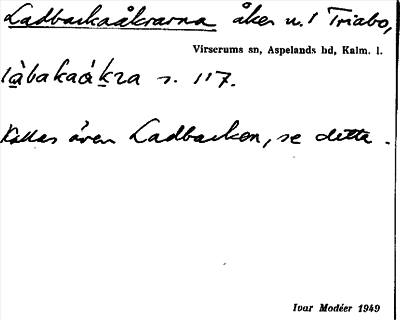 Ladbackaåkrarna åker u. 1 Triabo,
Virserums sn, Aspelands hd, Kalm. l.
làbakaákra s. 117.
Kallas även Ladbacken, se detta.
Ivar Modéer 1949